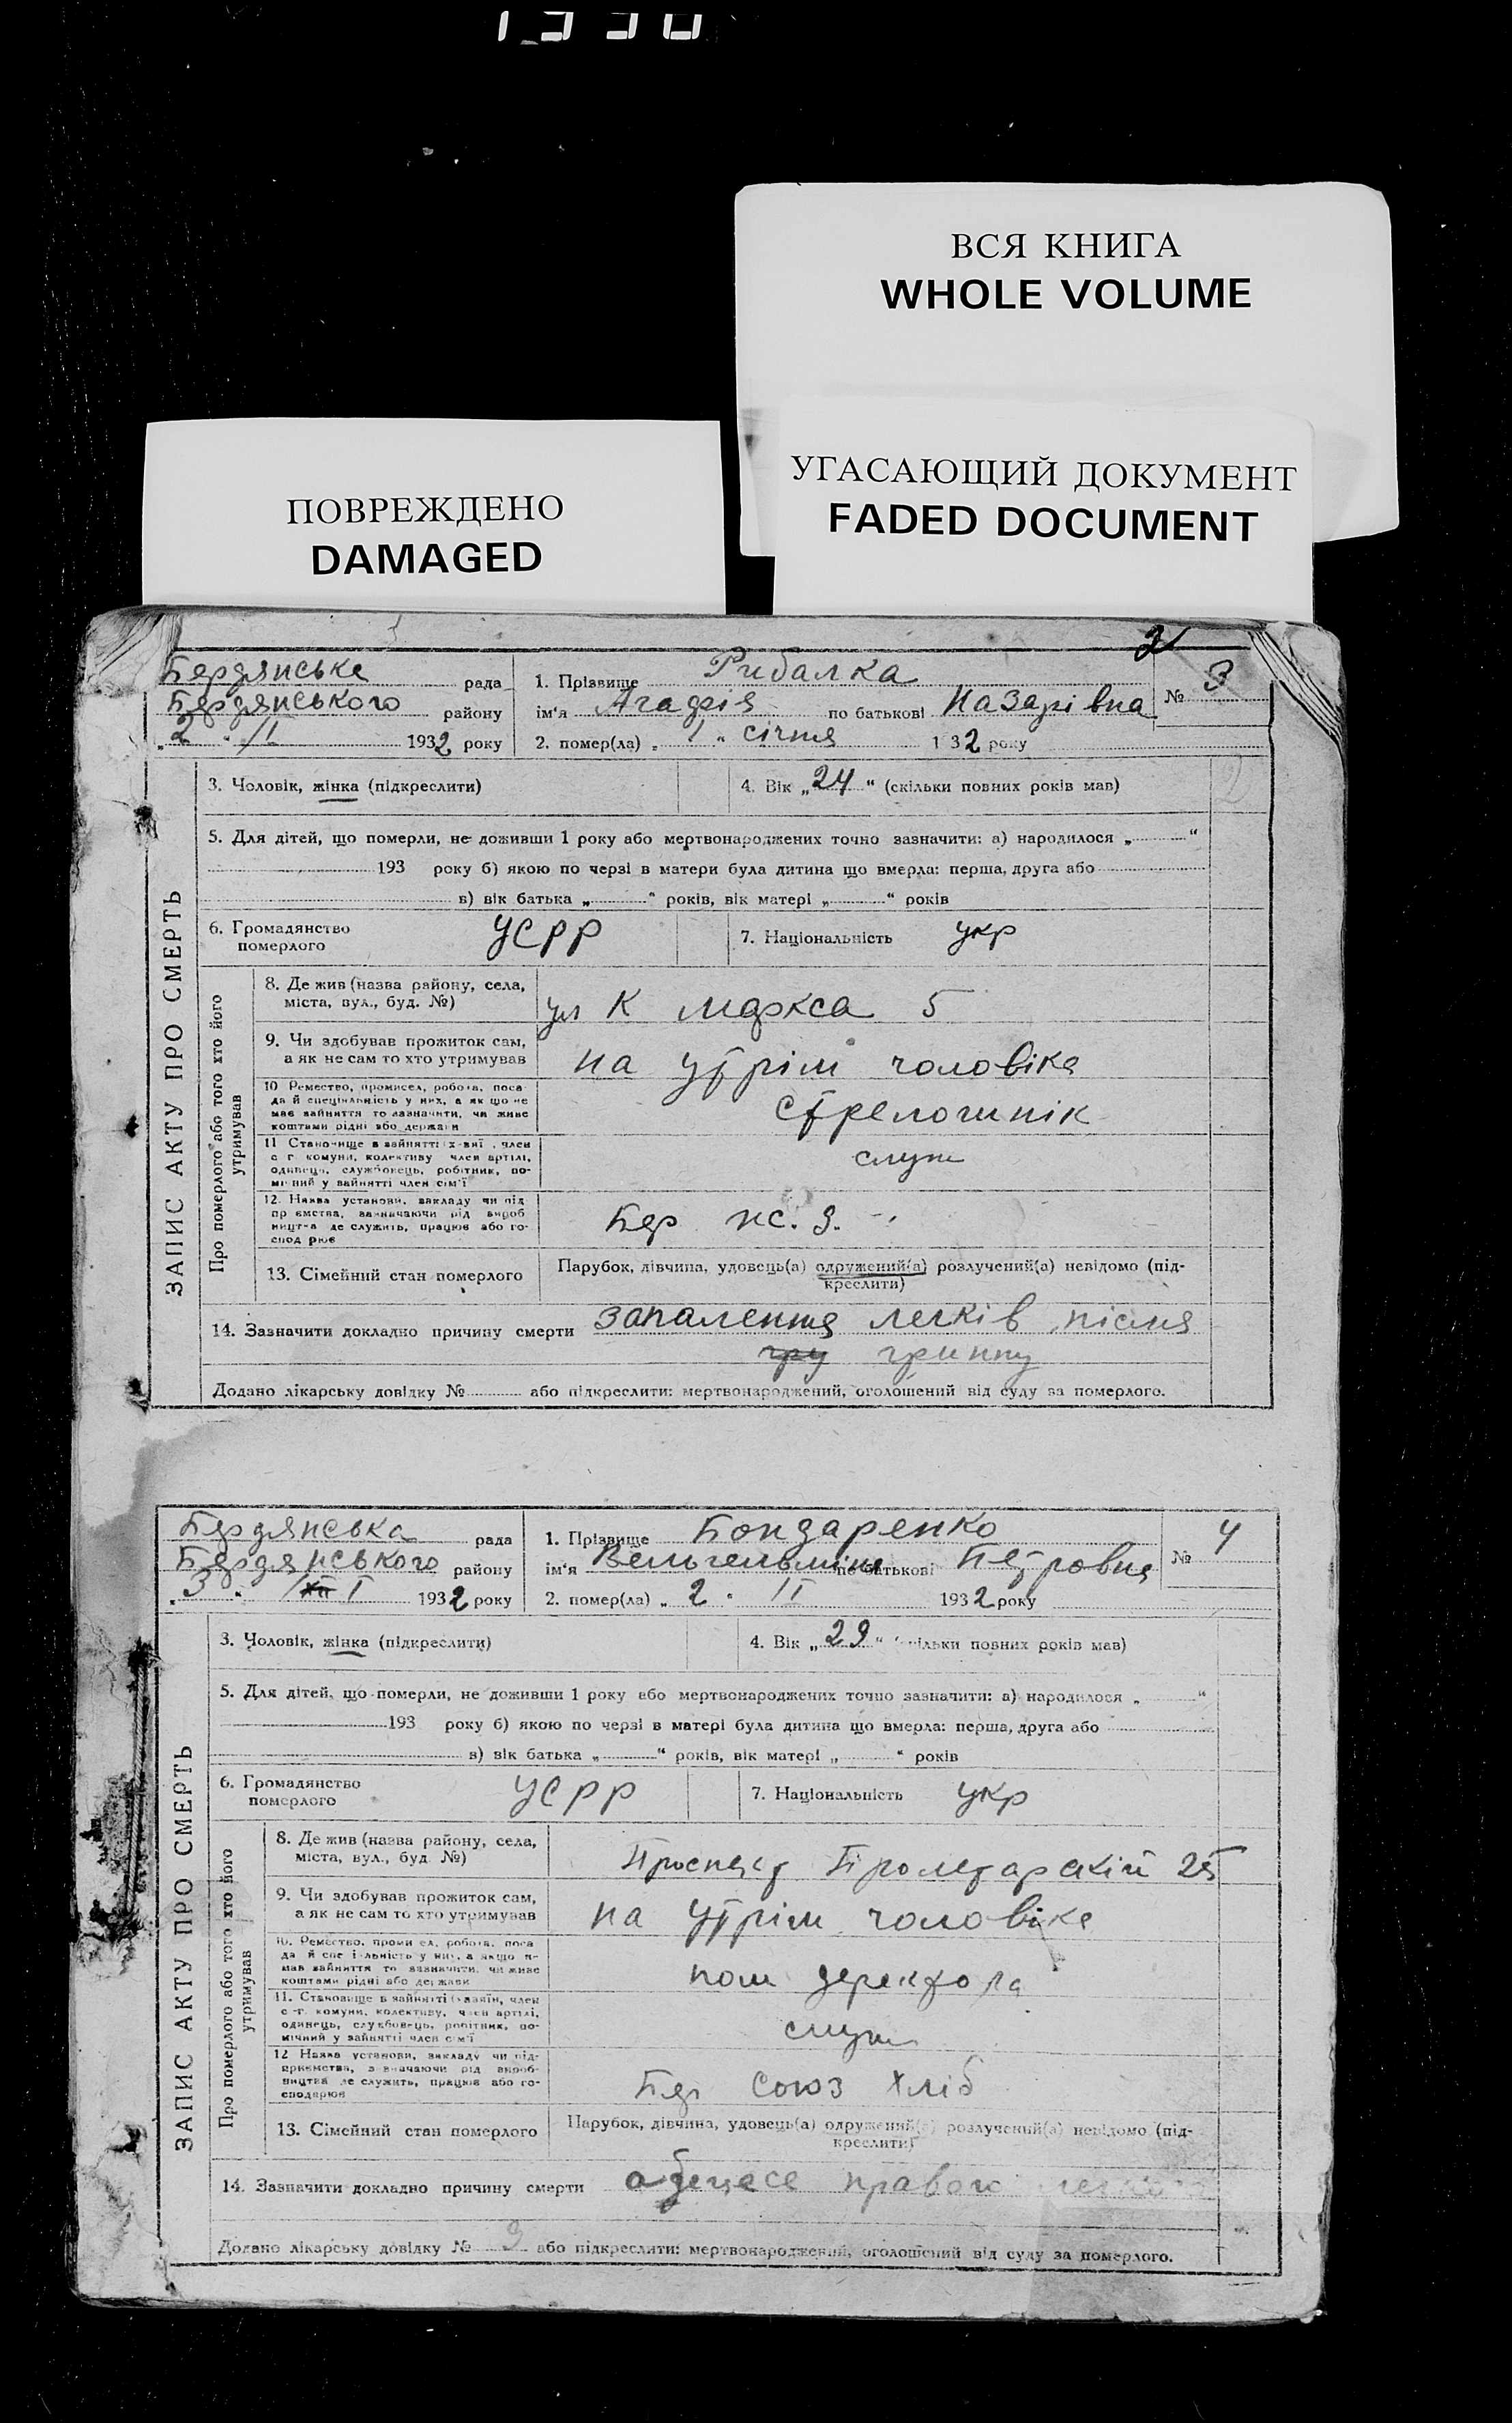 ВСЯ КНИГА
WHOLE VOLUME
УГАСАЮЩИЙ ДОКУМЕНТ
FADED DOCUMENT
ПОВРЕЖДЕНО
DAMAGED
2
Бердянська рада
1. Прізвище Рибалка
№ 3
Бердянського району
ім'я Агафія по батькові Назарівна
„2" /I 1932 року
2. помер(ла) „1" січня 1932 року
ЗАПИС АКТУ ПРО СМЕРТЬ
3. Чоловік, жінка (підкреслити)
4. Вік „24" (скільки повних років мав)
2
5. Для дітей, що померли, не доживши 1 року або мертвонароджених точно зазначити: а) народилося „ "
193 року б) якою по черзі в матери була дитина що вмерла: перша, друга або
в) вік батька „ " років, вік матері „ " років
6. Громадянство померлого УСРР
7. Національність укр
Про померлого або того хто його утримував
8. Де жив (назва району, села,
міста, вул., буд. №)
ул К Маркса 5
9. Чи здобував прожиток сам,
а як не сам то хто утримував
на утрім чоловіка
10 Ремество, промисел, робота, поса
да й спеціальність у них, а як що не
має зайняття то зазначити, чи живе
коштами рідні або держави
11 Становище в зайнятті член
с г. комуни, колективу член артілі,
одинець, службовець, робітник, по-
мічний у зайнятті член сім'ї
служ
12. Назва установи, закладу чи під
приємства, зазначаючи рід вироб
ництва де служить, працює або го-
сподарює
Бер
13. Сімейний стан померлого
Парубок, дівчина, удовець(а) одружений(а) розлучений(а) невідомо (під-
креслити)
14. Зазначити докладно причину смерти запалення легків після
гру гриппу
Додано лікарську довідку № або підкреслити: мертвонароджений, оголошений від суду за померлого.
Бердянська рада
1. Прізвище Бондаренко
№ 4
Бердянського району
ім'я Вельгельміна по батькові Петровна
„3" I 1932 року
2. помер(ла) „2" II 1932 року
ЗАПИС АКТУ ПРО СМЕРТЬ
3. Чоловік, жінка (підкреслити)
4. Вік „29" (скільки повних років мав)
5. Для дітей, що померли, не доживши 1 року або мертвонароджених точно зазначити: а) народилося „ "
193 року б) якою по черзі в матері була дитина що вмерла: перша, друга або
в) вік батька „ " років, вік матері „ " років
6. Громадянство померлого УСРР
7. Національність укр
Про померлого або того хто його утримував
8. Де жив (назва району, села,
міста, вул., буд. №)
Проспект Пролетарскій 25
9. Чи здобував прожиток сам,
а як не сам то хто утримував
на утрім чоловіка
10. Ремество, промисел, робота, поса
да й спеціальність у них, а якщо н-
має зайняття то зазначити, чи живе
коштами рідні або держави
пом деректора
11. Становище в зайнятті член
с-г. комуни, колективу, член артілі,
одинець, службовець, робітник, по-
мічний у зайнятті член сім'ї
служ
12 Назва установи, закладу чи під-
приємства, зазначаючи рід вироб-
ництва де служить, працює або го-
сподарює
Бер Союз Хліб
13. Сімейний стан померлого
Парубок, дівчина, удовець(а) одружений(а) розлучений(а) невідомо (під-
креслити)
14. Зазначити докладно причину смерти абцесс правого
Додано лікарську довідку № 9 або підкреслити: мертвонароджений, оголошений від суду за померлого.